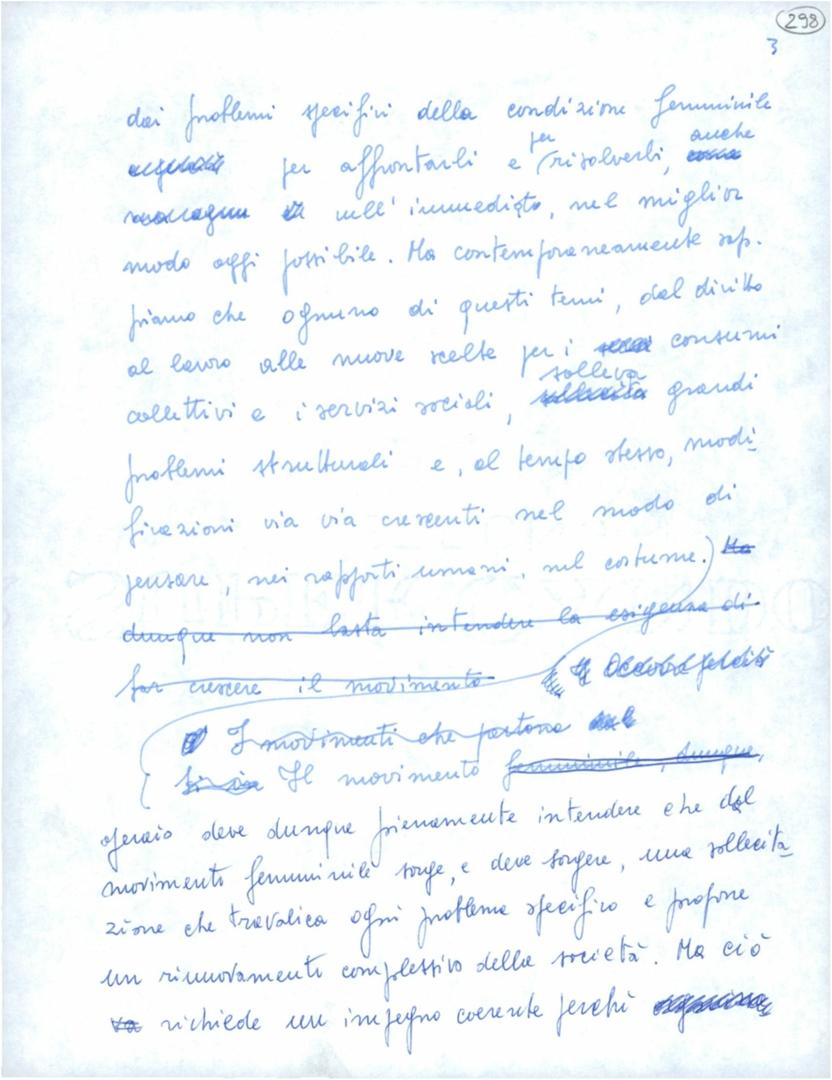 298
3
dai problemi specifici della condizione femminile
per affrontarli e per risolverli, anche
nell'immediato, nel miglior
modo oggi possibile. Ma contemporaneamente sap-
piamo che ognuno di questi temi, dal diritto
al lavoro alle nuove scelte per i consumi
collettivi e i servizi sociali, solleva grandi
problemi strutturali e, al tempo stesso, modi-
ficazioni via via crescenti nel modo di
pensare, nei rapporti umani, nel costume. Ma
dunque non basta intendere la esigenza di
far crescere il movimento
I movimenti che partono
Il movimento femminile, dunque,
operaio deve dunque pienamente intendere che dal
movimento femminile sorge, e deve sorgere, una sollecita-
zione che travalica ogni problema specifico e propone
un rinnovamento complessivo della società. Ma ciò
va richiede un impegno coerente perché